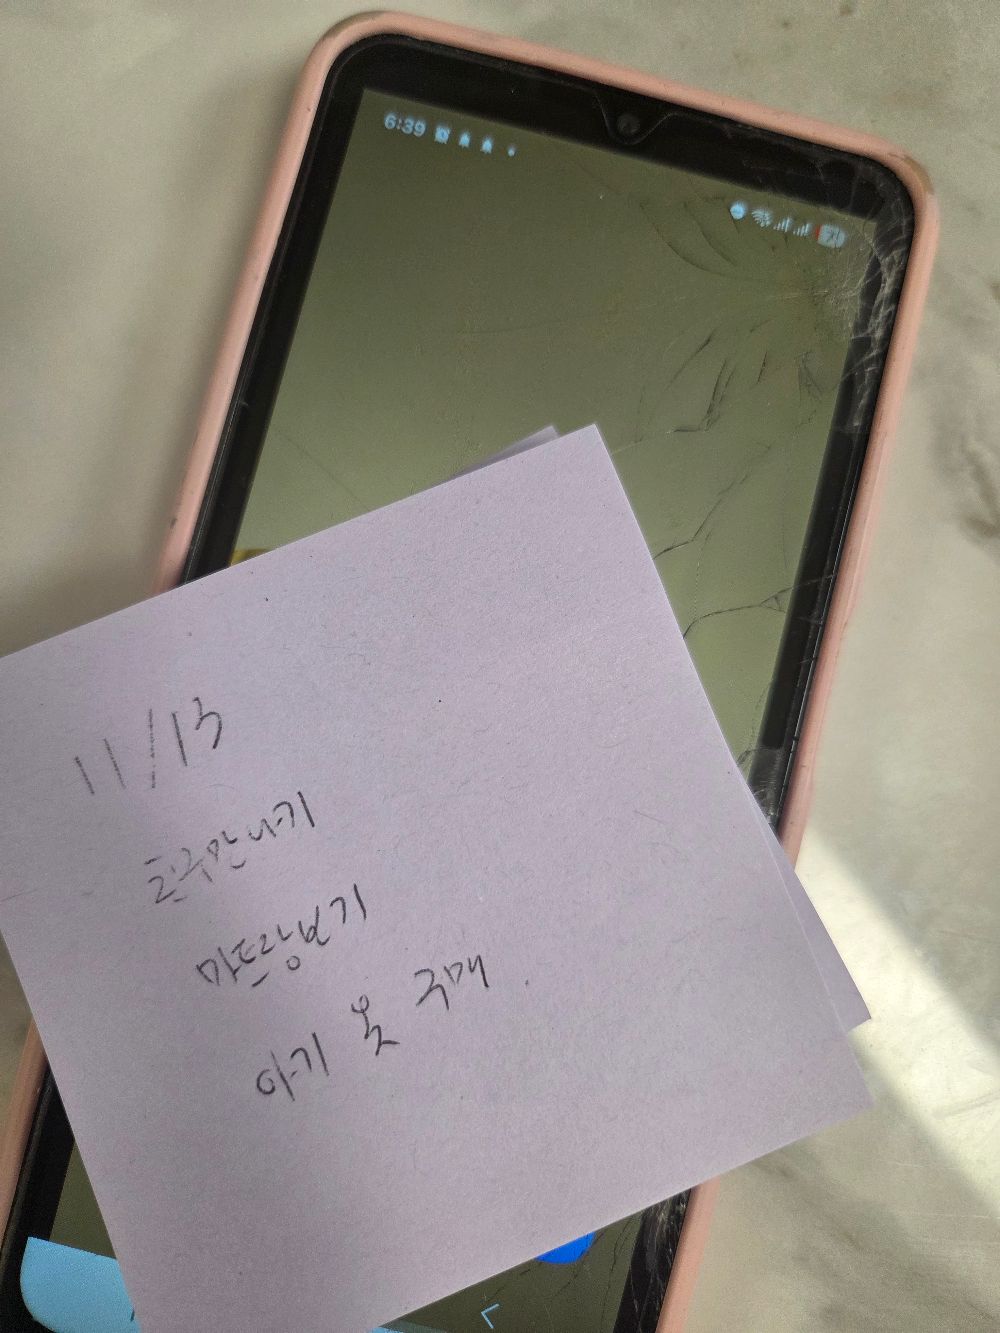 6:39
11/13
친구만나기
마트장보기
아기 옷 구매.